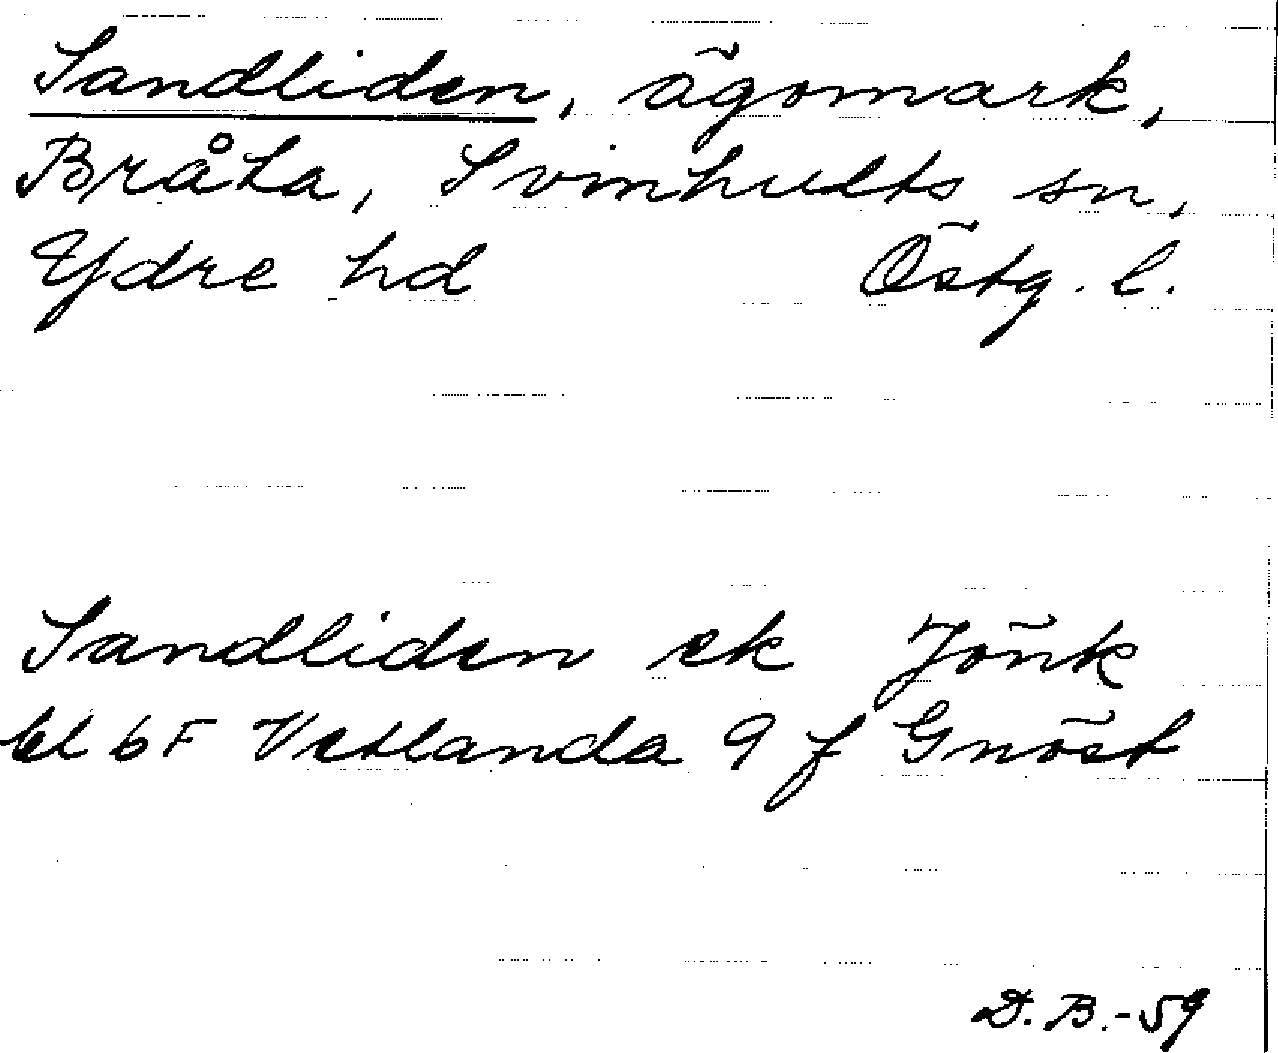 Sandliden, ägomark,
Bråta, Svinhults sn,
Ydre hd Östg. l.
Sandliden ek Jönk
bl 6F Vetlanda 9 f Gnöst
D.B.-59